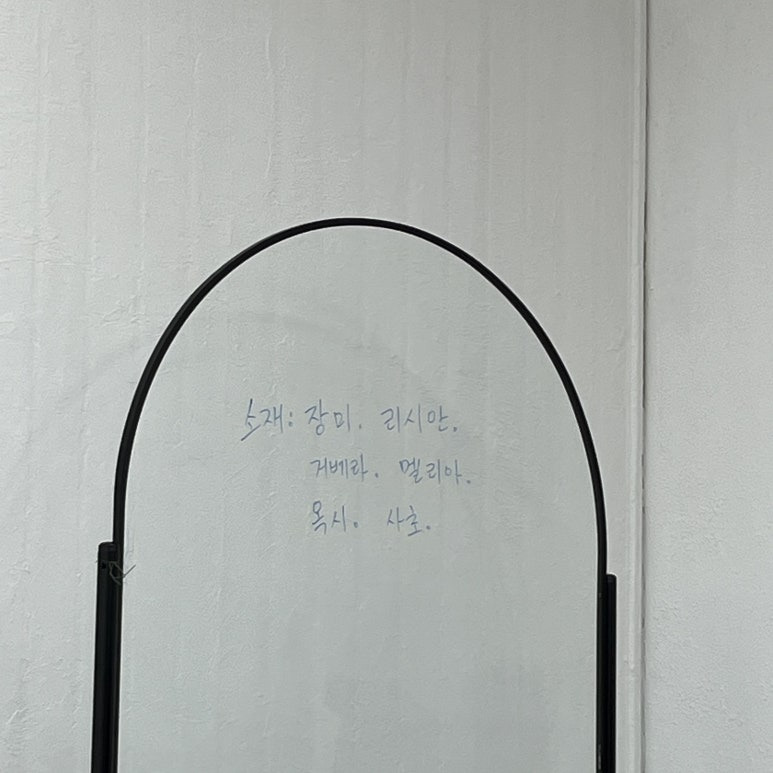 소재: 장미. 리시안.
거베라. 멜리아.
옥시. 사초.